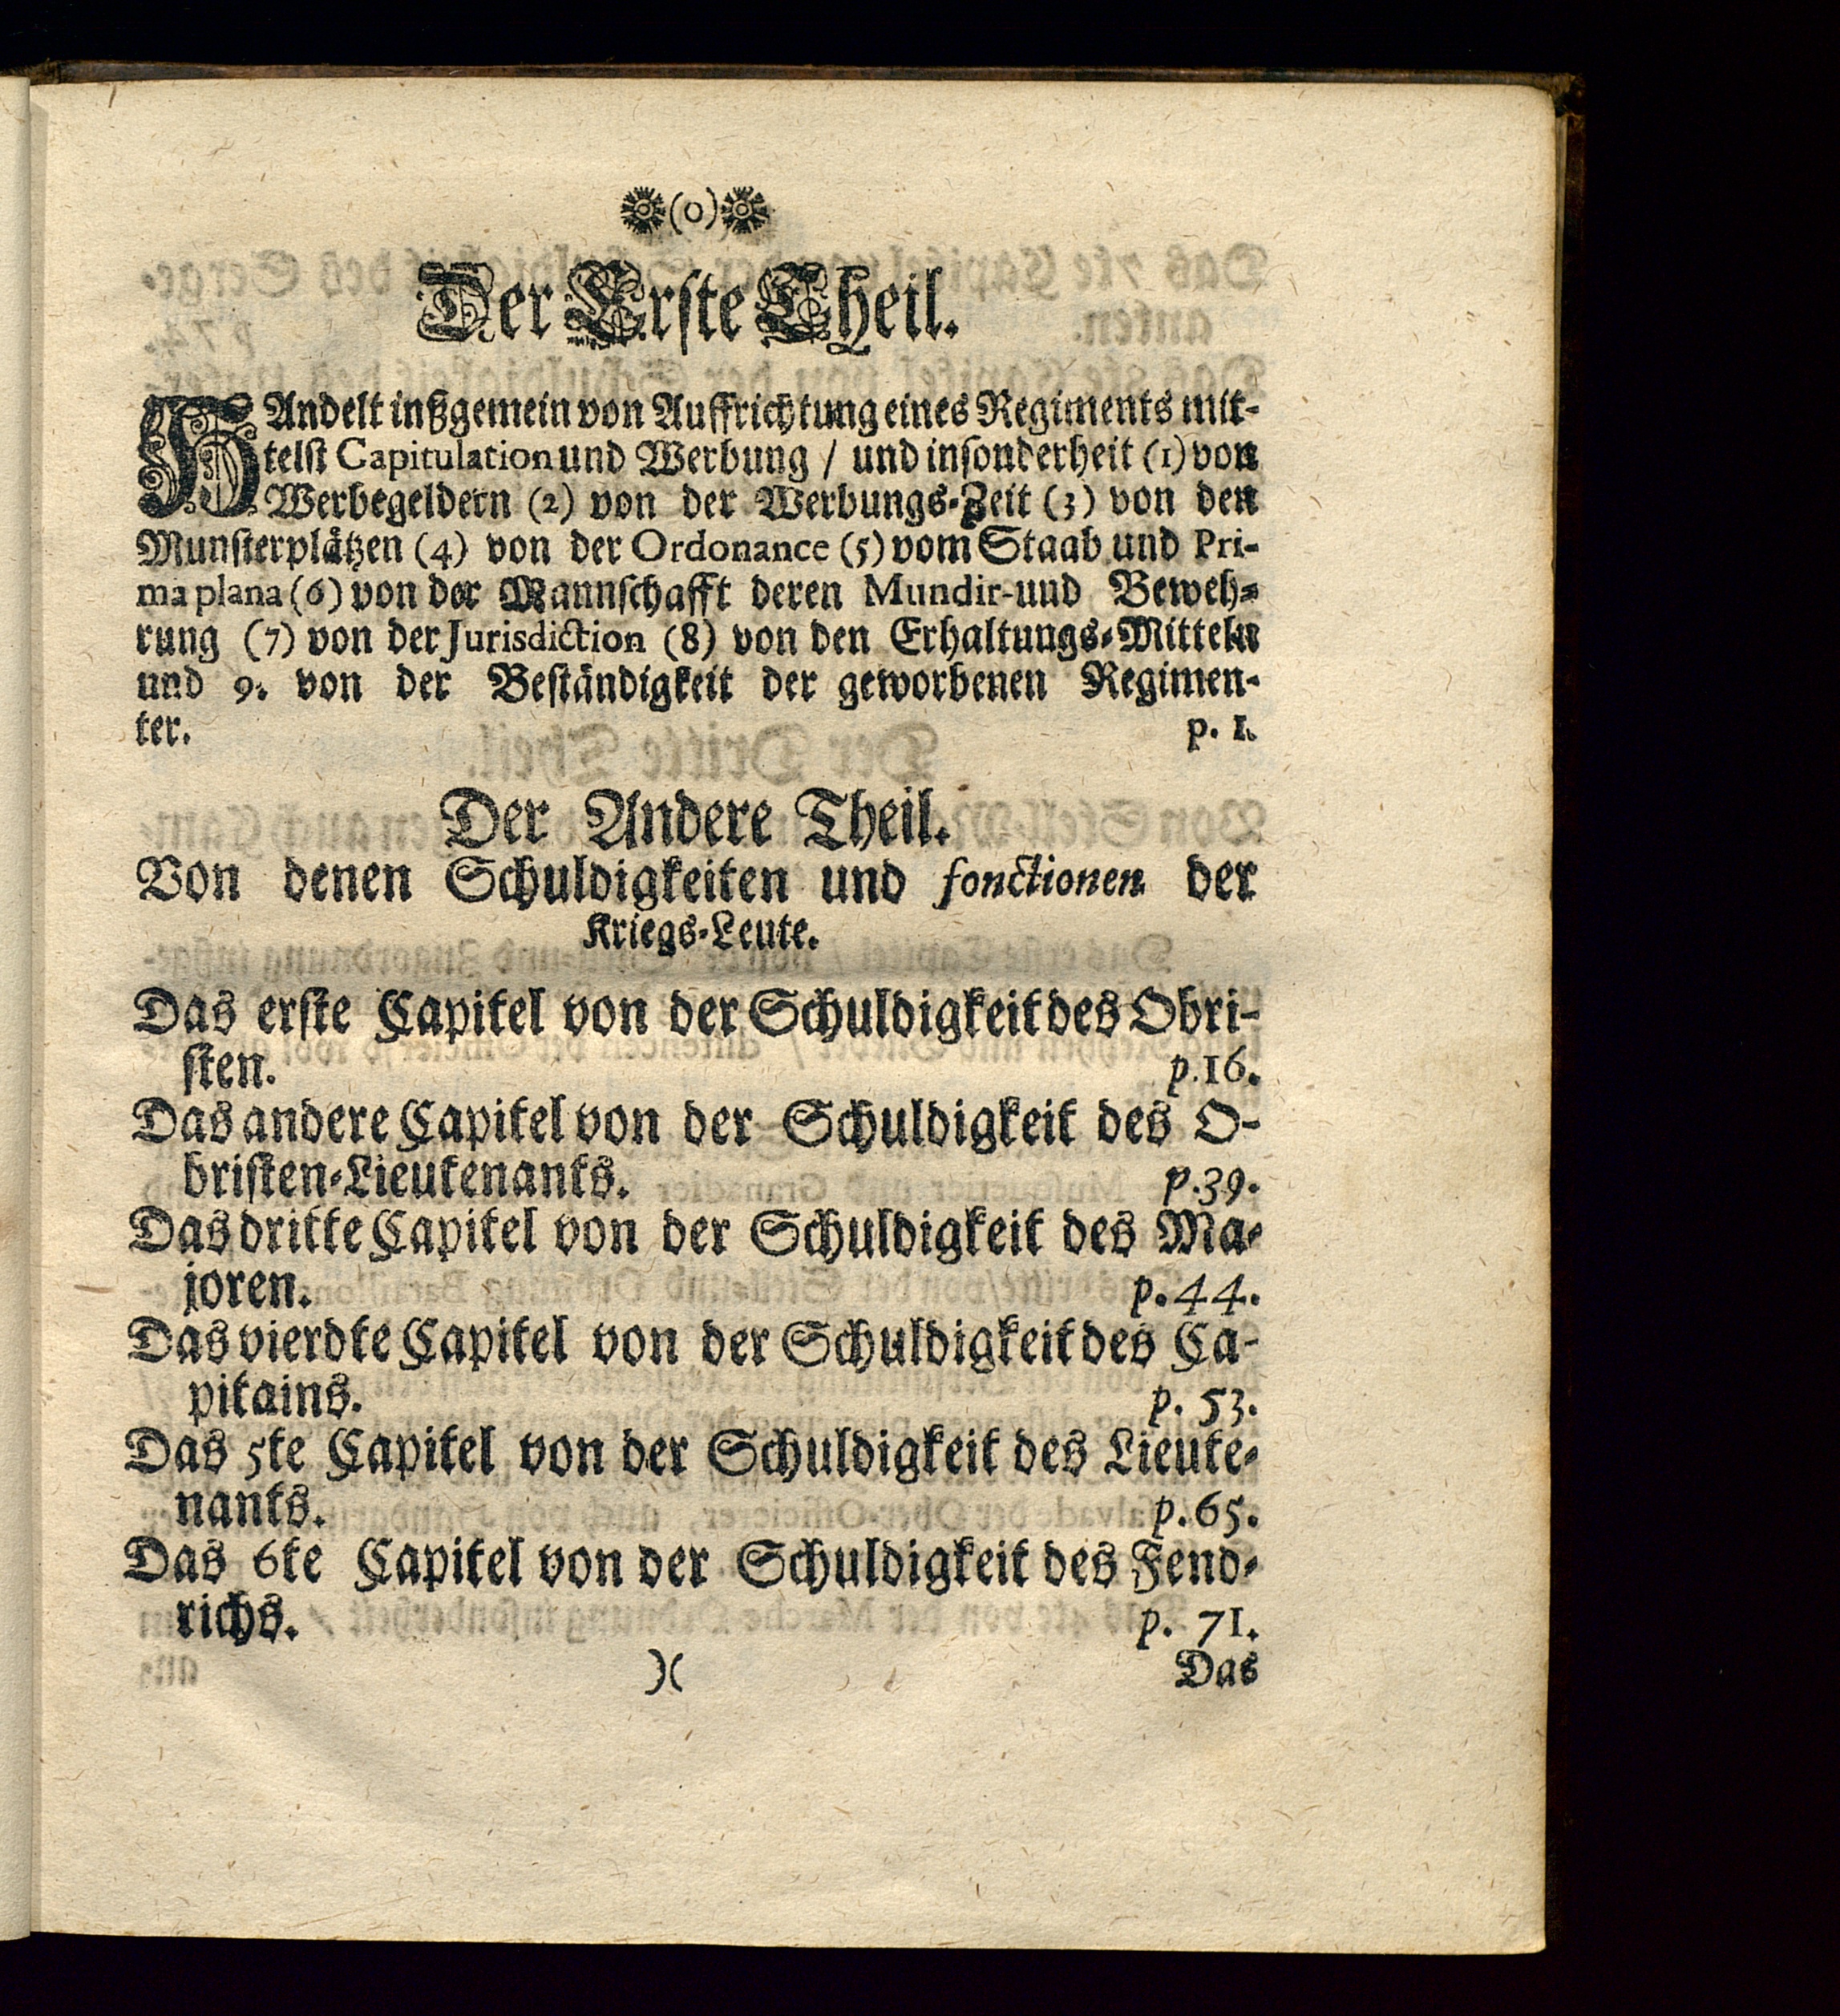 (0)
Der Erste Theil.
HAndelt inßgemein von Auffrichtung eines Regiments mit-
telst Capitulation und Werbung / und insonderheit (1) von
Werbegeldern (2) von der Werbungs-Zeit (3) von den
Munsterplätzen (4) von der Ordonance (5) vom Staab und Pri-
ma plana (6) von der Mannschafft deren Mundir-und Beweh-
rung (7) von der Jurisdiction (8) von den Erhaltungs-Mitteln
und 9. von der Beständigkeit der geworbenen Regimen-
ter. p. 1.
Der Andere Theil.
Von denen Schuldigkeiten und fonctionen der
Kriegs-Leute.
Das erste Capitel von der Schuldigkeit des Obri-
sten. p. 16.
Das andere Capitel von der Schuldigkeit des O-
bristen-Lieutenants. p. 39.
Das dritte Capitel von der Schuldigkeit des Ma-
joren. p. 44.
Das vierdte Capitel von der Schuldigkeit des Ca-
pitains. p. 53.
Das 5te Capitel von der Schuldigkeit des Lieute-
nants. p. 65.
Das 6te Capitel von der Schuldigkeit des Fend-
richs. p. 71.
)( Das